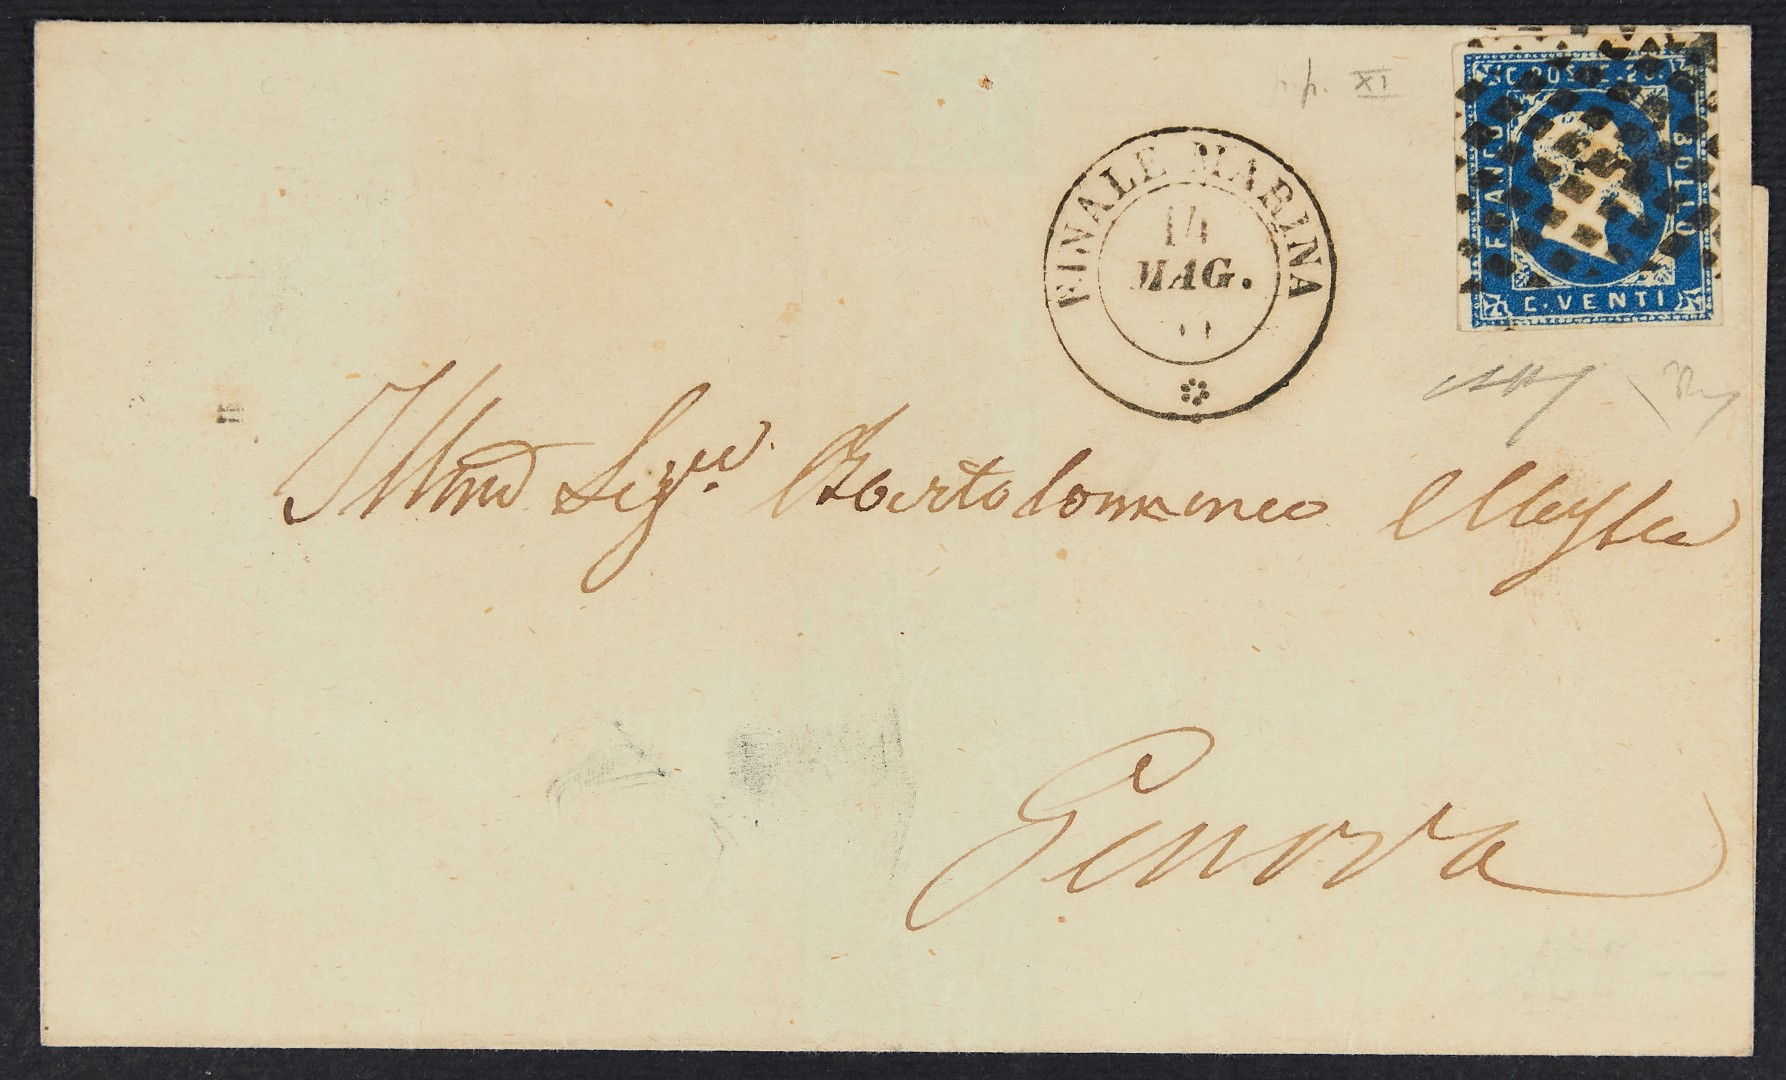 C. POSTE. 20.
FRANCO
BOLLO
C. VENTI
XI
FINALE MARINA
14
MAG.
Illmo Sigre Bartolommeo
Genova